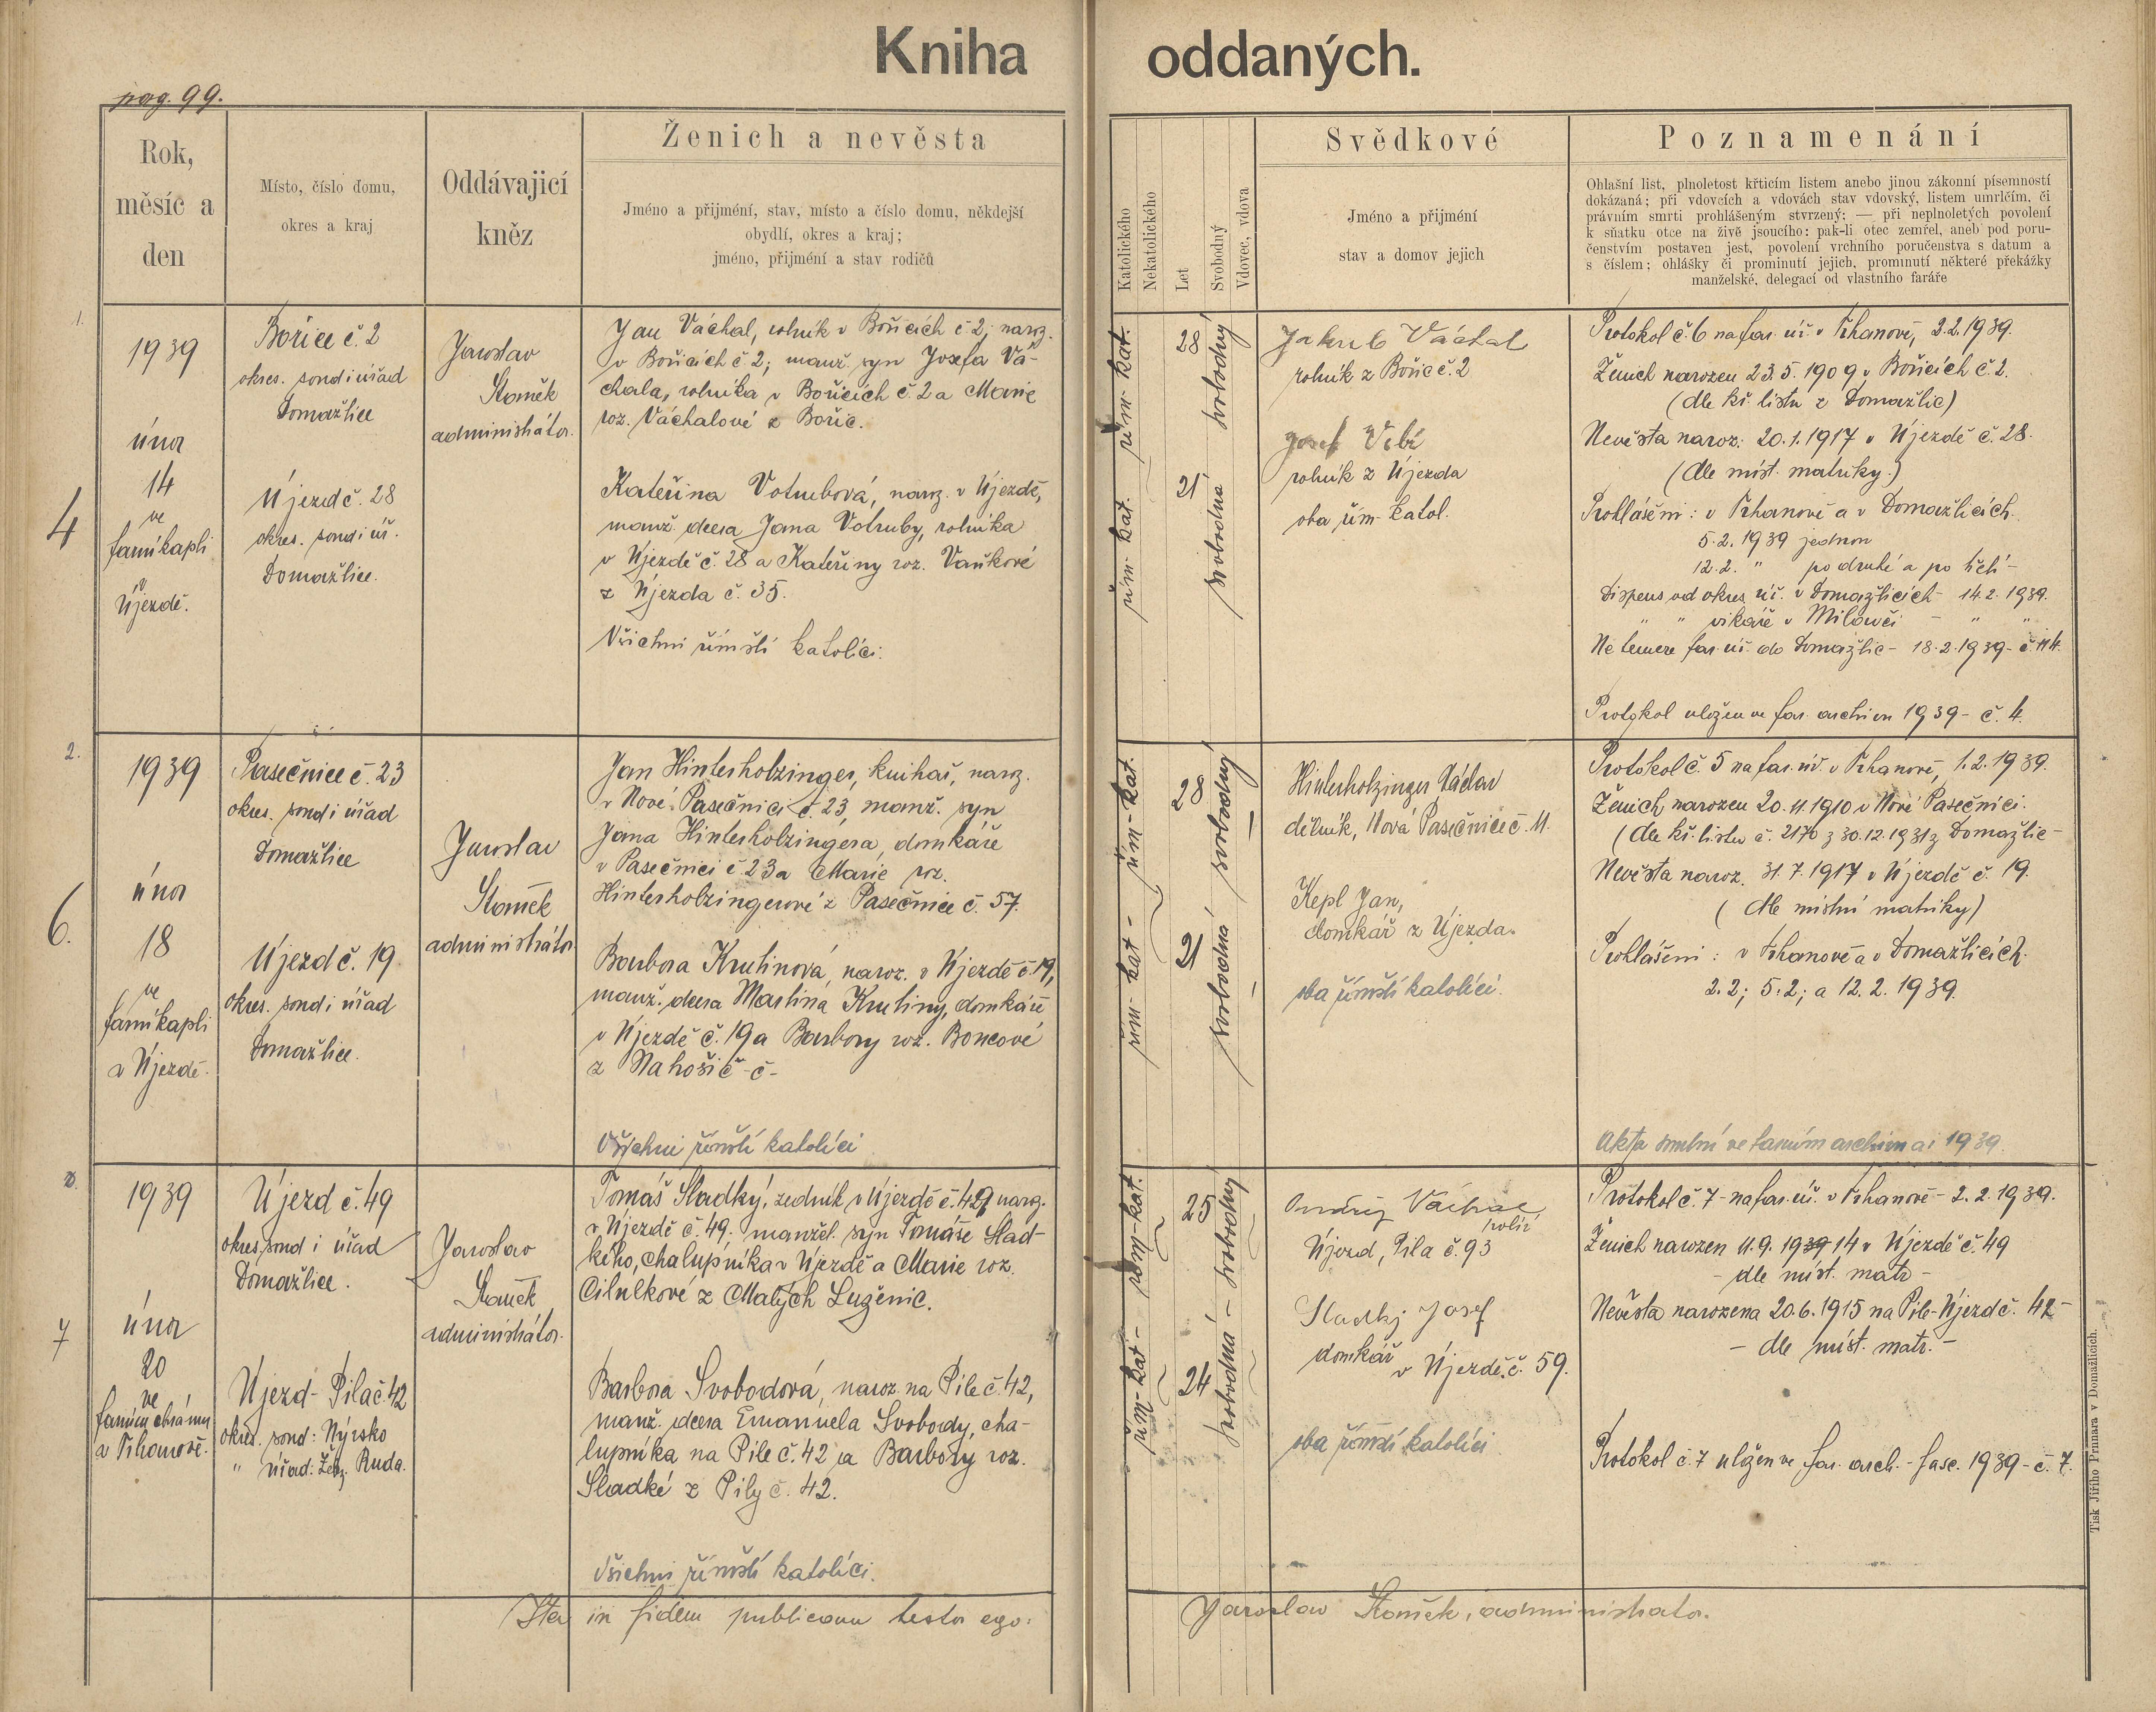 Kniha oddaných.
pag. 99.
Rok,
měsíc a
den
Místo, číslo domu,
okres a kraj
Oddávajicí
kněz
Ženich a nevěsta
Jméno a přijmení, stav, místo a číslo domu, někdejší
obydlí, okres a kraj;
jméno, přijmení a stav rodičů
Katolického
Nekatolického
Let
Svobodný
Vdovec, vdova
Svědkové
Jméno a přijmení
stav a domov jejich
Poznamenání
Ohlašní list, plnoletost křticím listem anebo jinou zákonní písemností
dokázaná; při vdovcích a vdovách stav vdovský, listem umrlčím, či
právním smrti prohlášeným stvrzený; — při neplnoletých povolení
k sňatku otce na živě jsoucího: pak-li otec zemřel, aneb pod poru-
čenstvím postaven jest, povolení vrchního poručenstva s datum a
s číslem; ohlášky či prominutí jejich, prominutí některé překážky
manželské, delegací od vlastního faráře
1.
4
1939
únor
14
ve
farní kapli
v
Újezdě.
Bořice č. 2
okres. soud i úřad
Domažlice
Újezd č. 28
okres. soud i úř.
Domažlice.
Jaroslav
administrátor.
Jan Váchal, rolník v Bořicích č 2, naroz.
v Bořicích č 2; manž. syn Josefa Vá-
chala, rolníka v Bořicích č. 2 a Marie
roz. Váchalové z Bořic.
Kateřina Votrubová, naroz. v Újezdě,
manž. dcera Jana Votruby, rolníka
v Újezdě č. 28 a Kateřiny roz. Vaňkové
z Újezda č. 35.
Všichni římští katolíci.
řím. kat.
řím- kat.
28
21
svobodný
svobodná
Jakub Váchal
rolník z Bořic č. 2
Josef
rolník z Újezda
oba řím- katol.
Protokol č. 6 na far. úř. v Trhanově, 2.2.1939.
Ženich narozen 23.5.1909 v Bořicích č. 2.
(dle kř. listu z Domažlic)
Nevěsta naroz. 20.1.1917 v Újezdě č. 28.
(dle míst. matriky.)
Prohlášeni: v Trhanově a v Domažlicích
5.2.1939 jednou
12.2. " po druhé a po třetí -
Dispens od okres. úř. v Domažlicích - 14.2.1939.
" " vikáře v Milavči - " "
Ne temere far. úř. do Domažlic - 18.2.1939 - č. 114.
Protokol uložen ve far. archivu 1939 - č. 4.
2.
6.
1939
únor
18
ve
farní kapli
v Újezdě.
Pasečnice č. 23
okres. soud i úřad
Domažlice
Újezd č. 19
okres. soud i úřad
Domažlice.
Jaroslav
administrátor
Jan Hinterholzinger, knihař, naroz.
v Nové Pasečnici č. 23, manž. syn
Jana Hinterholzingera, domkáře
v Pasečnici č. 23 a Marie roz.
Hinterholzingerové z Pasečnice č. 57.
Barbora Krutinová, naroz. v Újezdě č. 19,
manž. dcera Martina Krutiny, domkáře
v Újezdě č. 19 a Barbory roz. Boncové
z Nahošič - č -
Všichni římští katolíci
řím- kat.
řím- kat -
28
21
svobodný
svobodná
Hinterholzinger Václav
dělník, Nová Pasečnice č. 11.
Kepl Jan,
domkář z Újezda.
oba římští katolíci.
Protokol č. 5 na far. úř. v Trhanově, 1.2.1939.
Ženich narozen 20.11.1910 v Nové Pasečnici.
(dle kř. listu č. 2170 z 30.12.1931 z Domažlic -
Nevěsta naroz. 31.7.1917 v Újezdě č. 19.
(dle místní matriky)
Prohlášeni: v Trhanově a v Domažlicích
2.2; 5.2; a 12.2.1939.
Akta snubní ve farním archivu ai 1939.
3.
7
1939
únor
20
ve
farním chrámu
v Trhanově.
Újezd č. 49
okres. soud i úřad
Domažlice.
Újezd - Pila č. 42
okres. soud: Nýrsko
" úřad: Žel. Ruda.
Jaroslav
administrátor.
Tomáš Sladký, zedník v Újezdě č. 49 naroz.
v Újezdě č. 49. manžel. syn Tomáše Slad-
kého, chalupníka v Újezdě a Marie roz.
Cibulkové z Malých Luženic.
Barbora Svobodová, naroz. na Pile č. 42,
manž. dcera Emanuela Svobody, cha-
lupníka na Pile č. 42 a Barbory roz.
Sladké z Pily č. 42.
Všichni římští katolíci.
řím- kat.
řím- kat -
25
24
svobodný
svobodná -
Ondřej Váchal
rolír
Újezd, Pila č. 93
Sladký Josef
domkář
v Újezdě č. 59.
oba římští katolíci
Protokol č. 7 - na far. úř. v Trhanově - 2.2.1939.
Ženich narozen 11.9.1939 14 v Újezdě č. 49
- dle míst. matr -
Nevěsta narozena 20.6.1915 na Pile - Újezd č. 42 -
- dle míst. matr. -
Protokol č. 7 uložen ve far. arch. - fasc. 1939 - č. 7.
Ita in fidem publicam testor ego: Jaroslav administrátor.
Tisk Jiřího Prunara v Domažlicích.